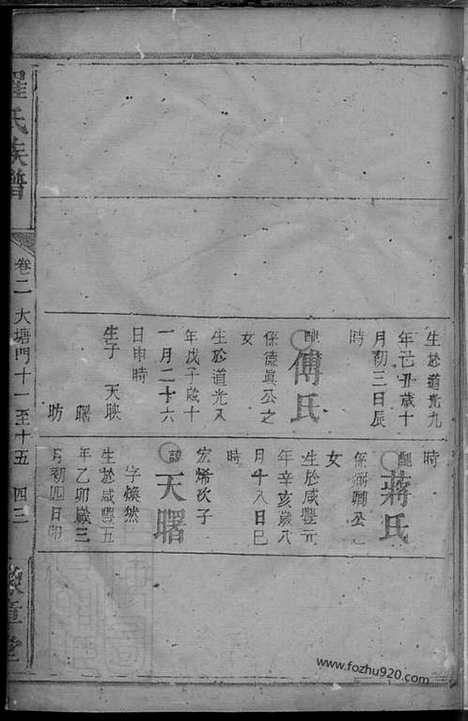 生於道光九
年己丑歲十
月初三日辰
時
配傅氏
係德真公之
女
生於道光八
年戊子歲十
一月二十六
日申時
生子 天映
曙
昉
時
配蔣氏
女
生於咸豐元
年辛亥歲八
月十八日巳
時
天曙
宏烯次子
字燦然
生於咸豐五
年乙卯歲三
月初四日
氏族譜
卷二 大塘門十一至十五 四三
www.fozhu920.com